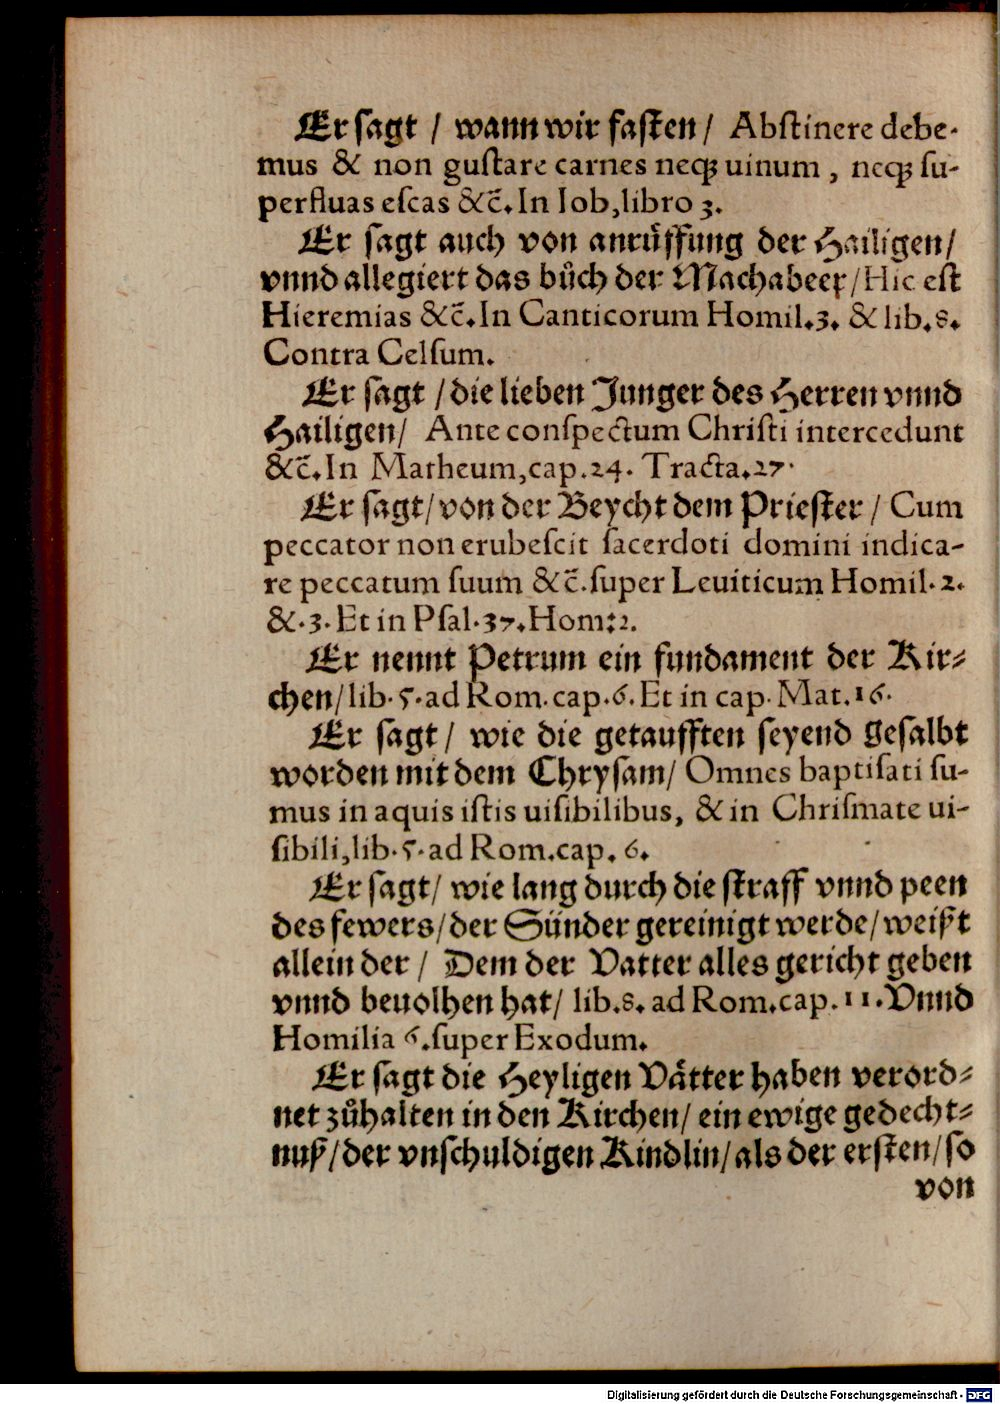 Er sagt / wann wir fasten / Abstinere debe-
mus & non gustare carnes neqꝫ uinum, neqꝫ su-
perfluas escas &c̃. In Iob, libro 3.
Er sagt auch von anruͤffung der Hailigen/
vnnd allegiert das buͦch der Machabeer/ Hic est
Hieremias &c̃. In Canticorum Homil. 3. & lib. 8.
Contra Celsum.
Er sagt / die lieben Junger des Herren vnnd
Hailigen/ Ante conspectum Christi intercedunt
&c̃. In Matheum, cap. 24. Tracta. 27.
Er sagt/ von der Beycht dem Priester / Cum
peccator non erubescit sacerdoti domini indica-
re peccatum suum &c̃. super Leuiticum Homil. 2.
&. 3. Et in Psal. 37. Hom: 2.
Er nennt Petrum ein fundament der Kir-
chen/ lib. 5. ad Rom. cap. 6. Et in cap. Mat. 16.
Er sagt/ wie die getaufften seyend gesalbt
worden mit dem Chrysam/ Omnes baptisati su-
mus in aquis istis uisibilibus, & in Chrismate ui-
sibili, lib. 5. ad Rom. cap. 6.
Er sagt/ wie lang durch die straff vnnd peen
des fewers/ der Sünder gereinigt werde/ weißt
allein der / Dem der Vatter alles gericht geben
vnnd beuolhen hat/ lib. 8. ad Rom. cap. 11. Vnnd
Homilia 6. super Exodum.
Er sagt die Heyligen Vaͤtter haben verord-
net zuͦhalten in den Kirchen/ ein ewige gedecht-
nuß/ der vnschuldigen Kindlin/ als der ersten/ so
von
Digitalisierung gefördert durch die Deutsche Forschungsgemeinschaft - DFG